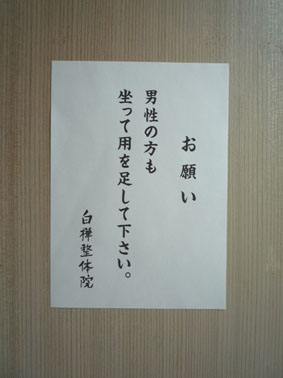 お願い
男性の方も
坐って用を足して下さい。
白樺整体院